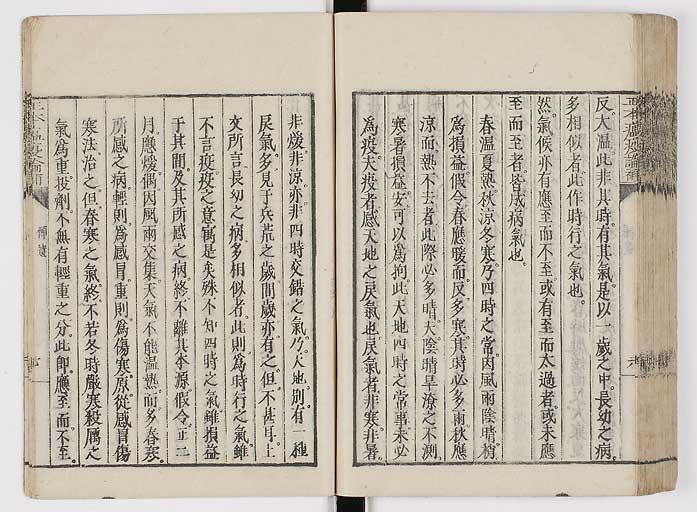 反大溫此非其時有其氣是以一歲之中長幼之病
多相似者此作時行之氣也
然氣候亦有應至而不至或有至而太過者或未應
至而至者皆成病氣也
春溫夏熱秋涼冬寒乃四時之常因風雨陰晴稍
爲損益假令春應暖而反多寒其時必多雨秋應
涼而熱不去者此際必多晴夫陰晴旱潦之不測
寒暑損益安可以爲拘此天地四時之常事未必
爲疫夫疫者感天地之戾氣也戾氣者非寒非暑
非煖非涼亦非四時交錯之氣乃天地別有一種
戾氣多見于兵荒之歲間歲亦有之但不甚耳上
文所言長幼之病多相似者此則爲時行之氣雖
不言疫疫之意寓是矣殊不知四時之氣雖損益
于其間及其所感之病終不離其本源假令正二
月應煖偶因風雨交集天氣不能溫熱而多春寒
所感之病輕則爲感冒重則爲傷寒原從感冒傷
寒法治之但春寒之氣終不若冬時嚴寒殺厲之
氣爲重投劑不無有輕重之分此即應至而不至